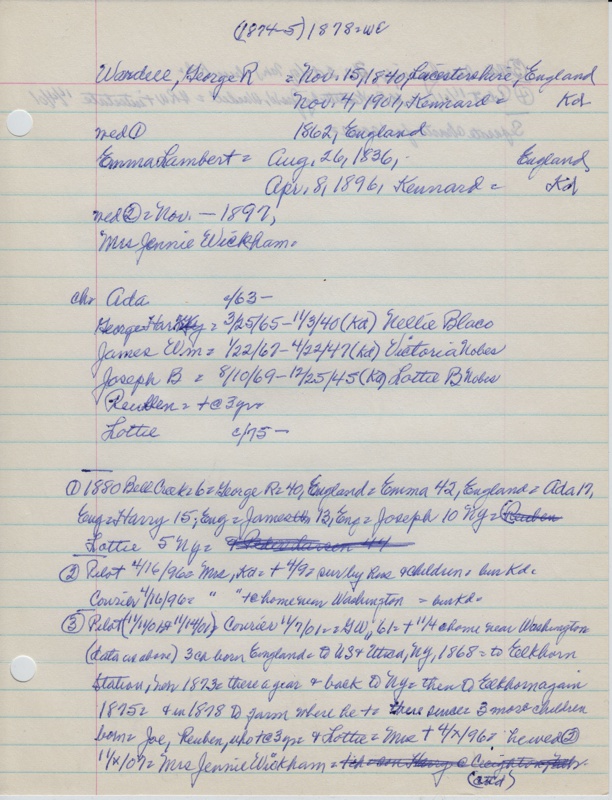 (1874-5) 1878=WC
Wardell, George R = Nov. 15, 1840, Leicestershire, England
Nov. 4, 1901, Kennard = Kd
wed① 1862, England
Emma Lambert = Aug. 26, 1836, England,
Apr. 8, 1896, Kennard = Kd
wed② = Nov. — 1897,
Mrs Jennie Wickham =
ch= Ada c/63 -
George Harry = 3/25/65-11/3/40 (Kd) Nellie Blaco
James Wm = 1/22/67-4/22/47 (Kd) Victoria Nobes
Joseph B = 8/10/69-12/25/45 (Kd) Lottie B Nobes
Reuben = + @ 3yr
Lottie c/75 -
① 1880 Bell Creek = 6 = George R = 40, England = Emma 42, England = Ada 17,
Eng = Harry 15, Eng = James 13, Eng = Joseph 10 Ny = Reuben
Lottie 5 Ny =
② Pilot 4/16/96 = Mrs, Kd = + 4/9 = sur by hus & children = bur Kd =
Courier 4/16/96 = " " + @ home near Washington = bur Kd =
③ Pilot (11/14/01) Courier 11/7/01 = GW, 61 = + 11/4 @ home near Washington
(data as above) 3 ch born England = to US & Utica, Ny, 1868 = to Elkhorn
Station, Nov 1873 = there a year & back to Ny = then to Elkhorn again
1875 = & in 1878 to farm where he + = there since 3 more children
born = Joe, Reuben, who + @ 3yr & Lottie = Mrs + 4/x/96 = he wed ②
11/x/07 = Mrs Jennie Wickham =
(cond)